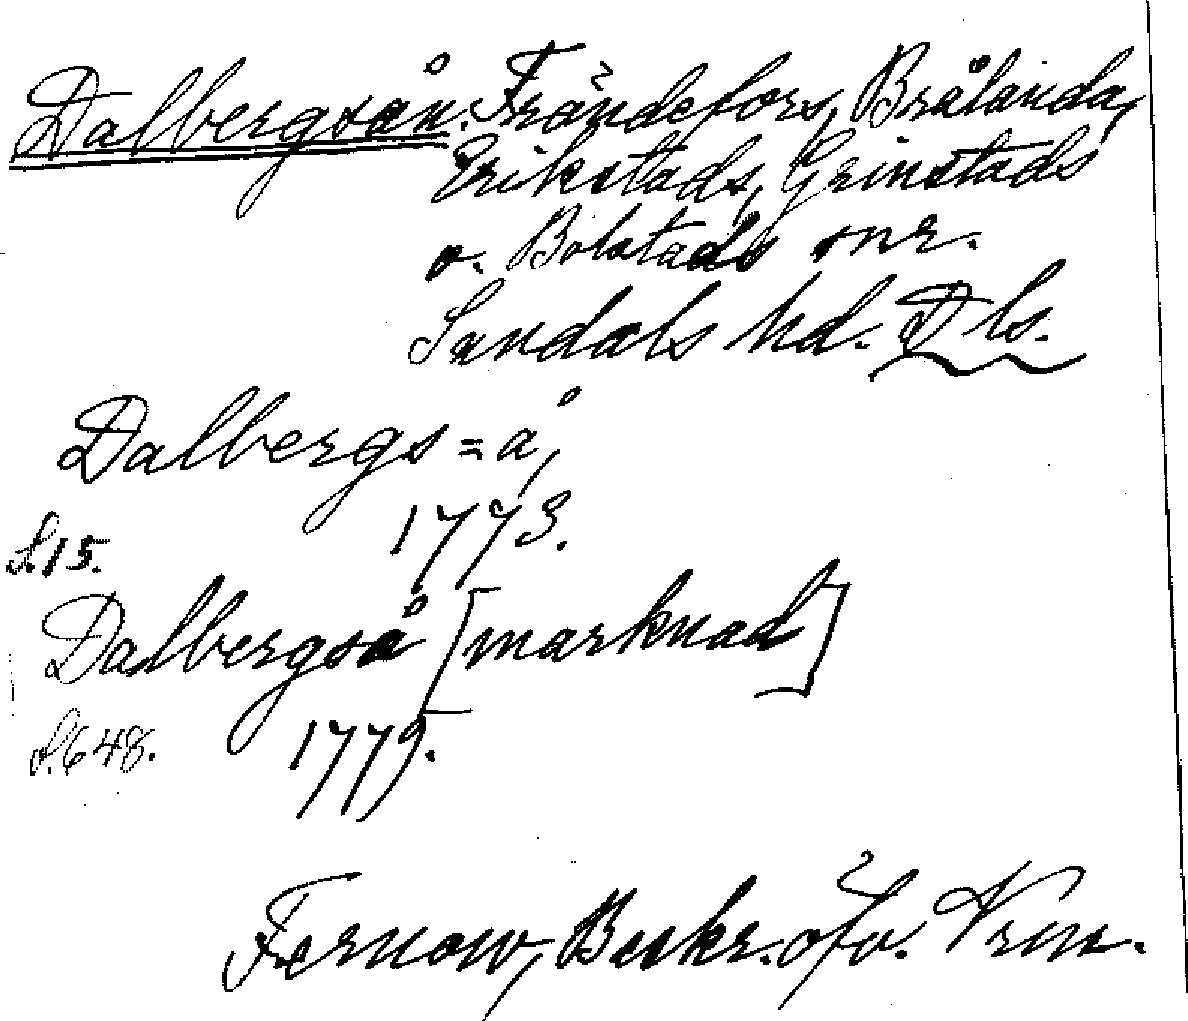 Dalbergsån. Frändefors, Brålanda,
Erikstads, Grinstads
o. Bolstads snr.
Sundals hd. Dls.
Dalbergs=å,
1773.
S.15.
Dalbergså [marknad]
S.648. 1779.
Fernow, Beskr. öfv. Vrm.